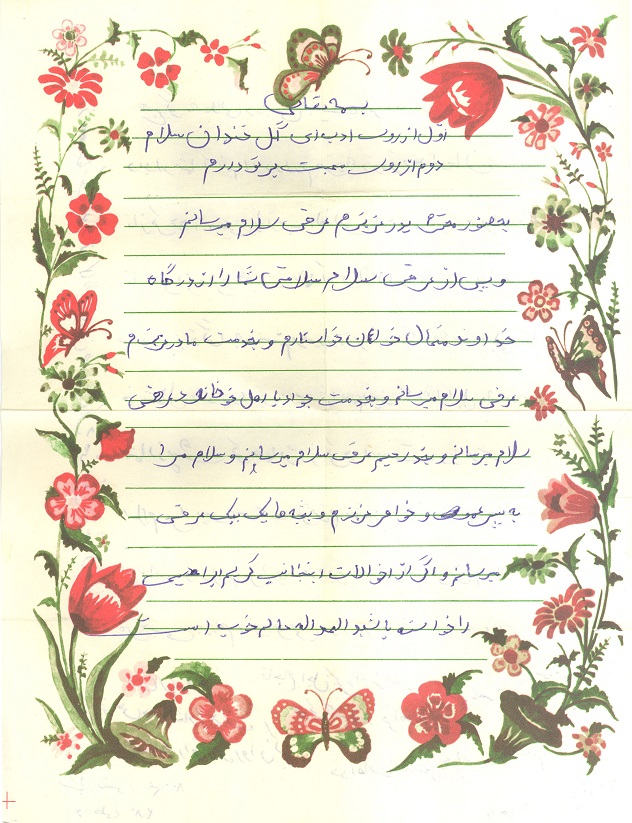 بسمه تعالی
اول از روی ادب ای گل خندان سلام
دوم از روی محبت بر تو دارم
به حضور محترم پدر عزیزم عرض سلام میرسانم
و پس از عرض سلام سلامتی شما را از درگاه
خداوند متعال خواهان خواستارم و بخدمت مادر عزیزم
عرض سلام میرسانم و بخدمت جواد با اهل خانواده عرض
سلام میرسانم و رحیم عرض سلام میرسانم و سلام مرا
به و خواهر عزیزم و بچه ها یک بیک عرض
میرسانم و اگر از احوالات اینجانب کریم ابراهیمی
را خواسته باشید الحمدالله حالم خوب است